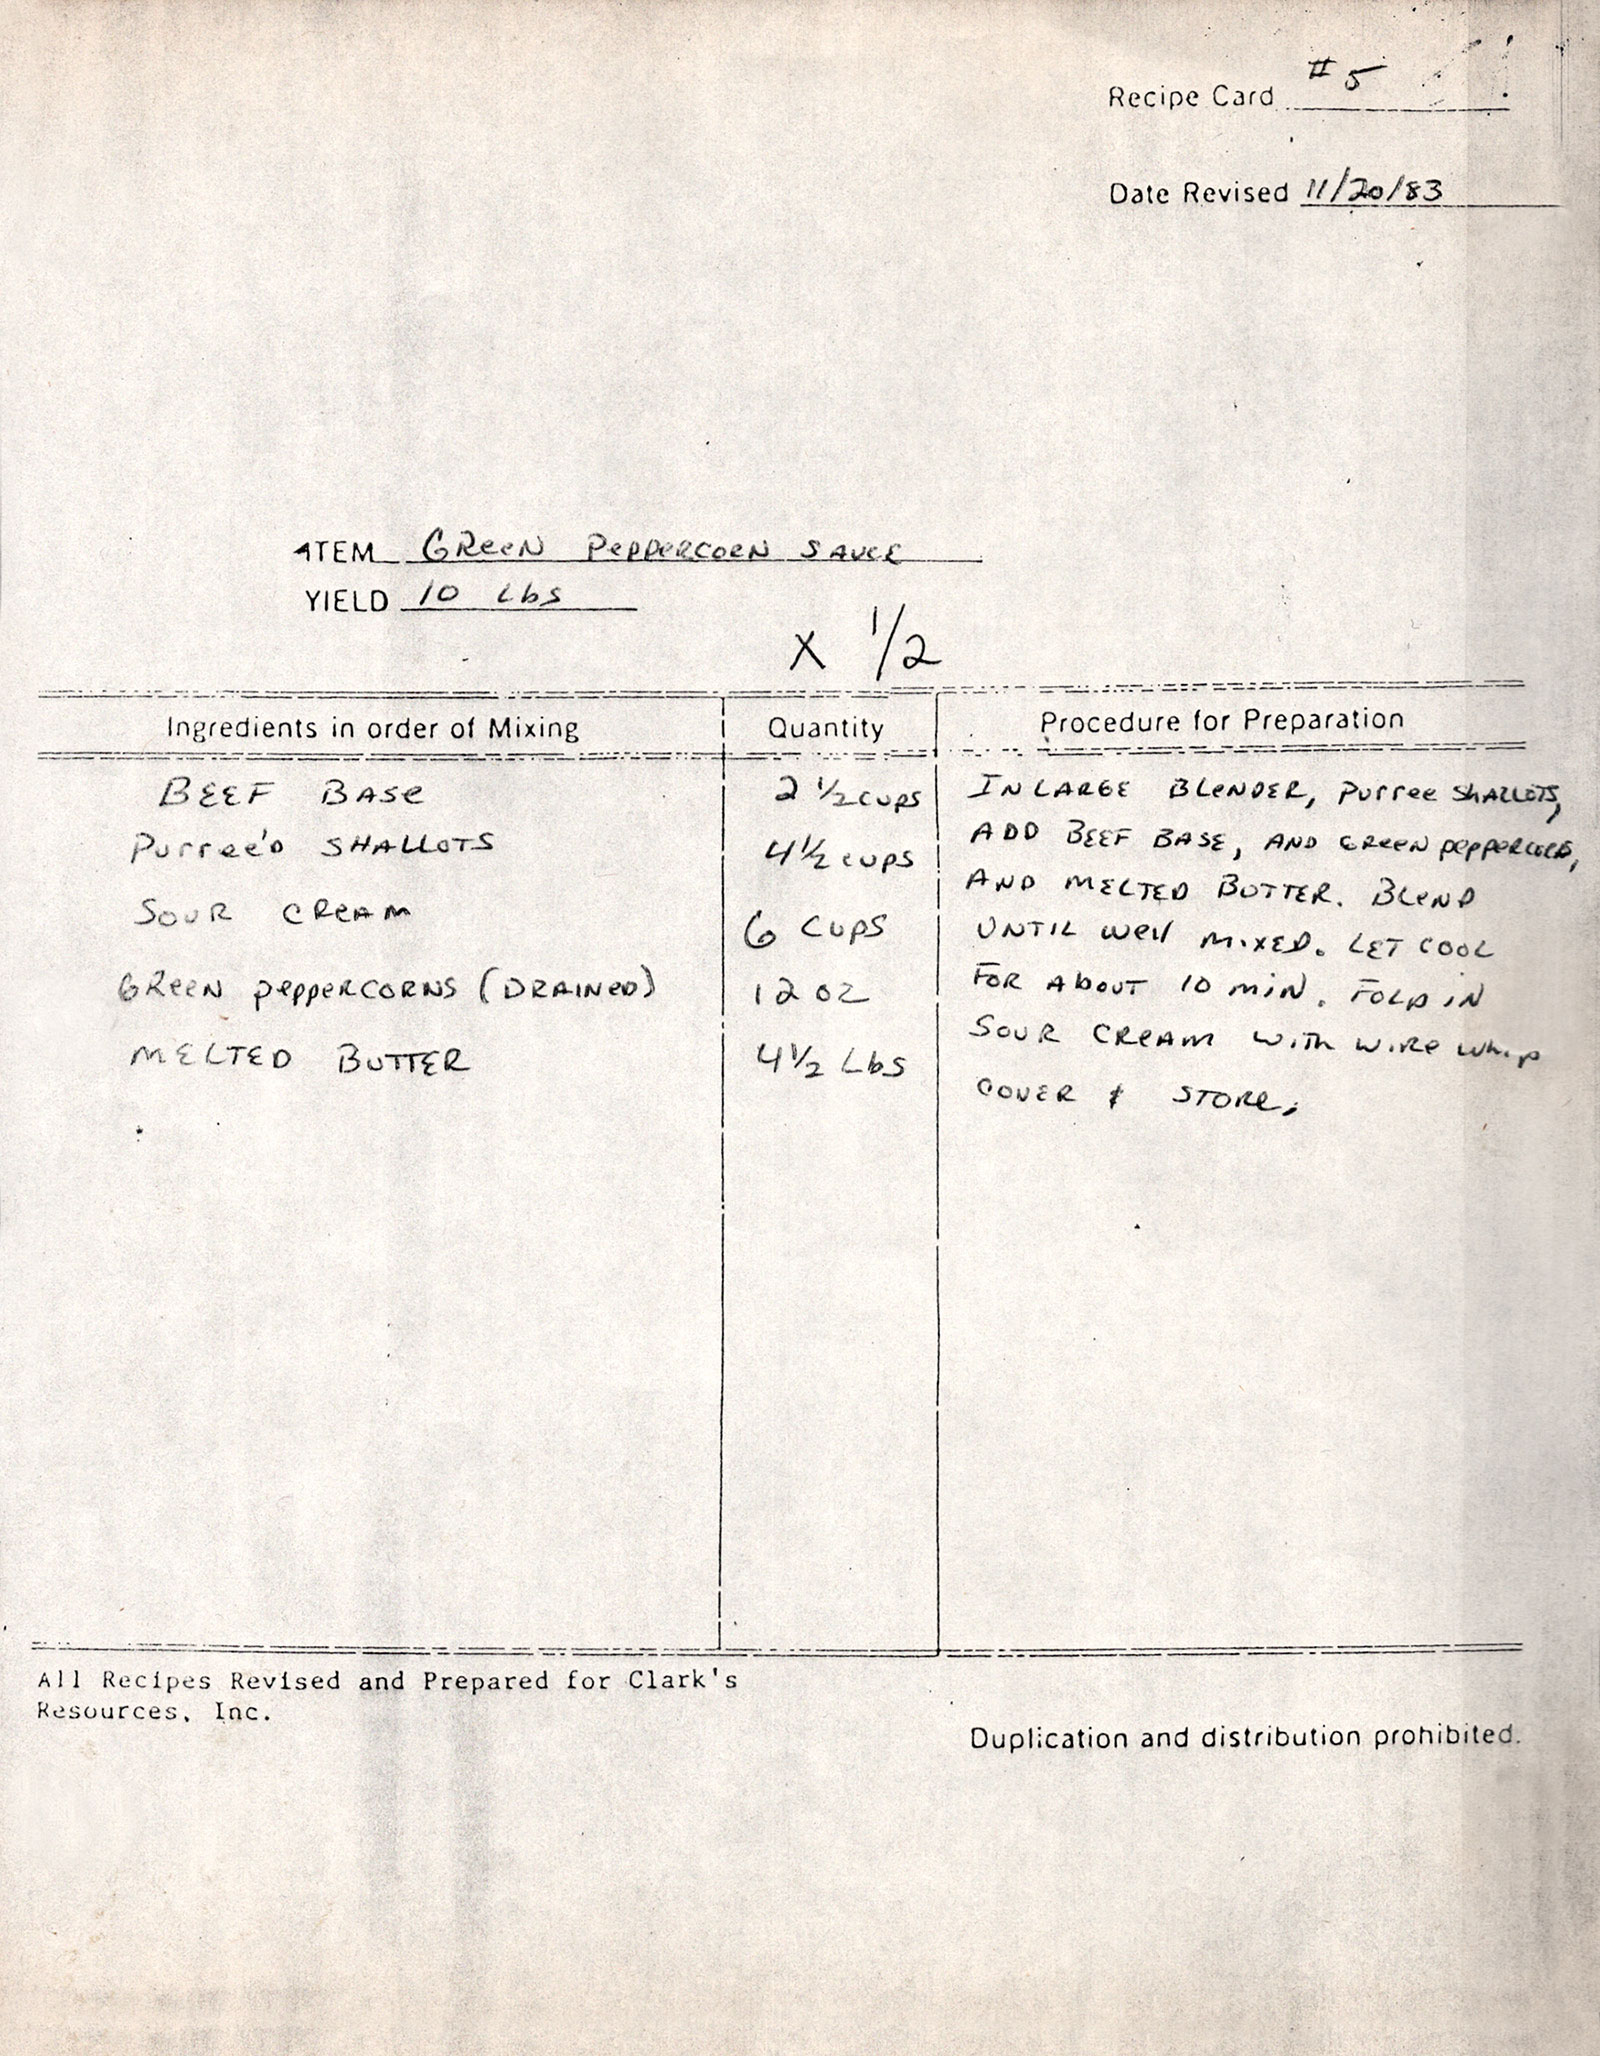 Recipe Card #5
Date Revised 11/20/83
ITEM GReeN PePPeRCORN SAUCE
YIELD 10 Lbs
X 1/2
Ingredients in order of Mixing Quantity Procedure for Preparation
BEEF BASe 2 1/2 cups
Purree'D SHALLOTS 4 1/2 cups
SOUR CReAM 6 CUPS
GReeN peppeRCORNS (DRAINeD) 12 oz
MELTED BUTTER 4 1/2 Lbs
IN LARGE BLeNDER, Purree SHALLOTS,
ADD BEEF BASE, AND GReeN peppercorns,
AND MELTED BUTTER. BLeND
UNTIL well MIXED. LET COOL
FOR About 10 MiN. FOLD iN
SOUR CREAM WITH WIRe whip
COVER & STORe.
All Recipes Revised and Prepared for Clark's
Resources, Inc.
Duplication and distribution prohibited.